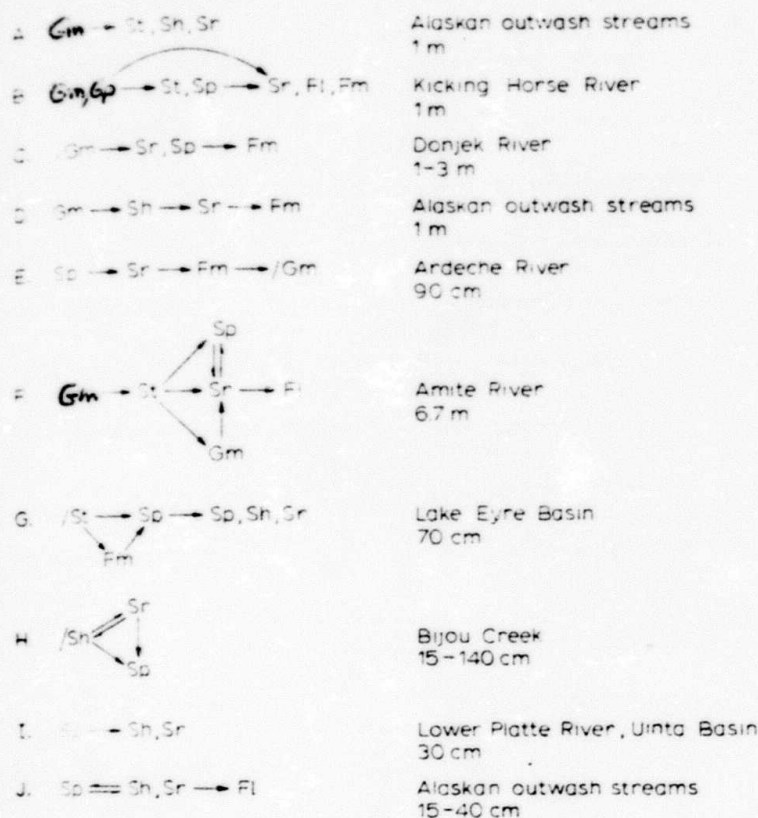 A. Gm → St, Sh, Sr Alaskan outwash streams
1 m
B. Gm,Gp → St, Sp → Sr, Fl, Fm Kicking Horse River
1 m
C. Gm → Sr, Sp → Fm Donjek River
1-3 m
D. Gm → Sh → Sr → Fm Alaskan outwash streams
1 m
E. Sp → Sr → Fm → /Gm Ardeche River
90 cm
Sp
F. Gm → St → Sr → Fl Amite River
6.7 m
Gm
G. /St → Sp → Sp, Sh, Sr Lake Eyre Basin
70 cm
Fm
Sr
H. /Sh Bijou Creek
15-140 cm
Sp
I. → Sh, Sr Lower Platte River, Uinta Basin
30 cm
J. Sp ⇌ Sh, Sr → Fl Alaskan outwash streams
15-40 cm